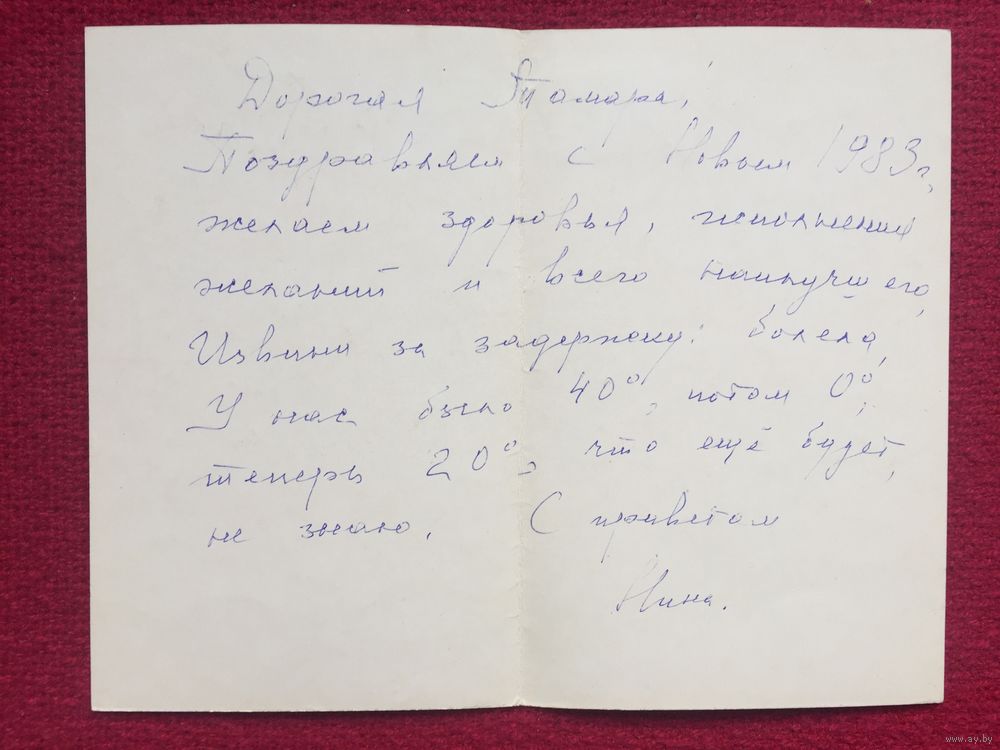 Дорогая Тамара!
Поздравляем с Новым 1983г.,
желаем здоровья, исполнения
желаний и всего наилучшего.
Извини за задержку: болела,
У нас было 40°, потом 0°,
теперь 20°, что ещё будет,
не знаю. С приветом
Нина.
www.ay.by